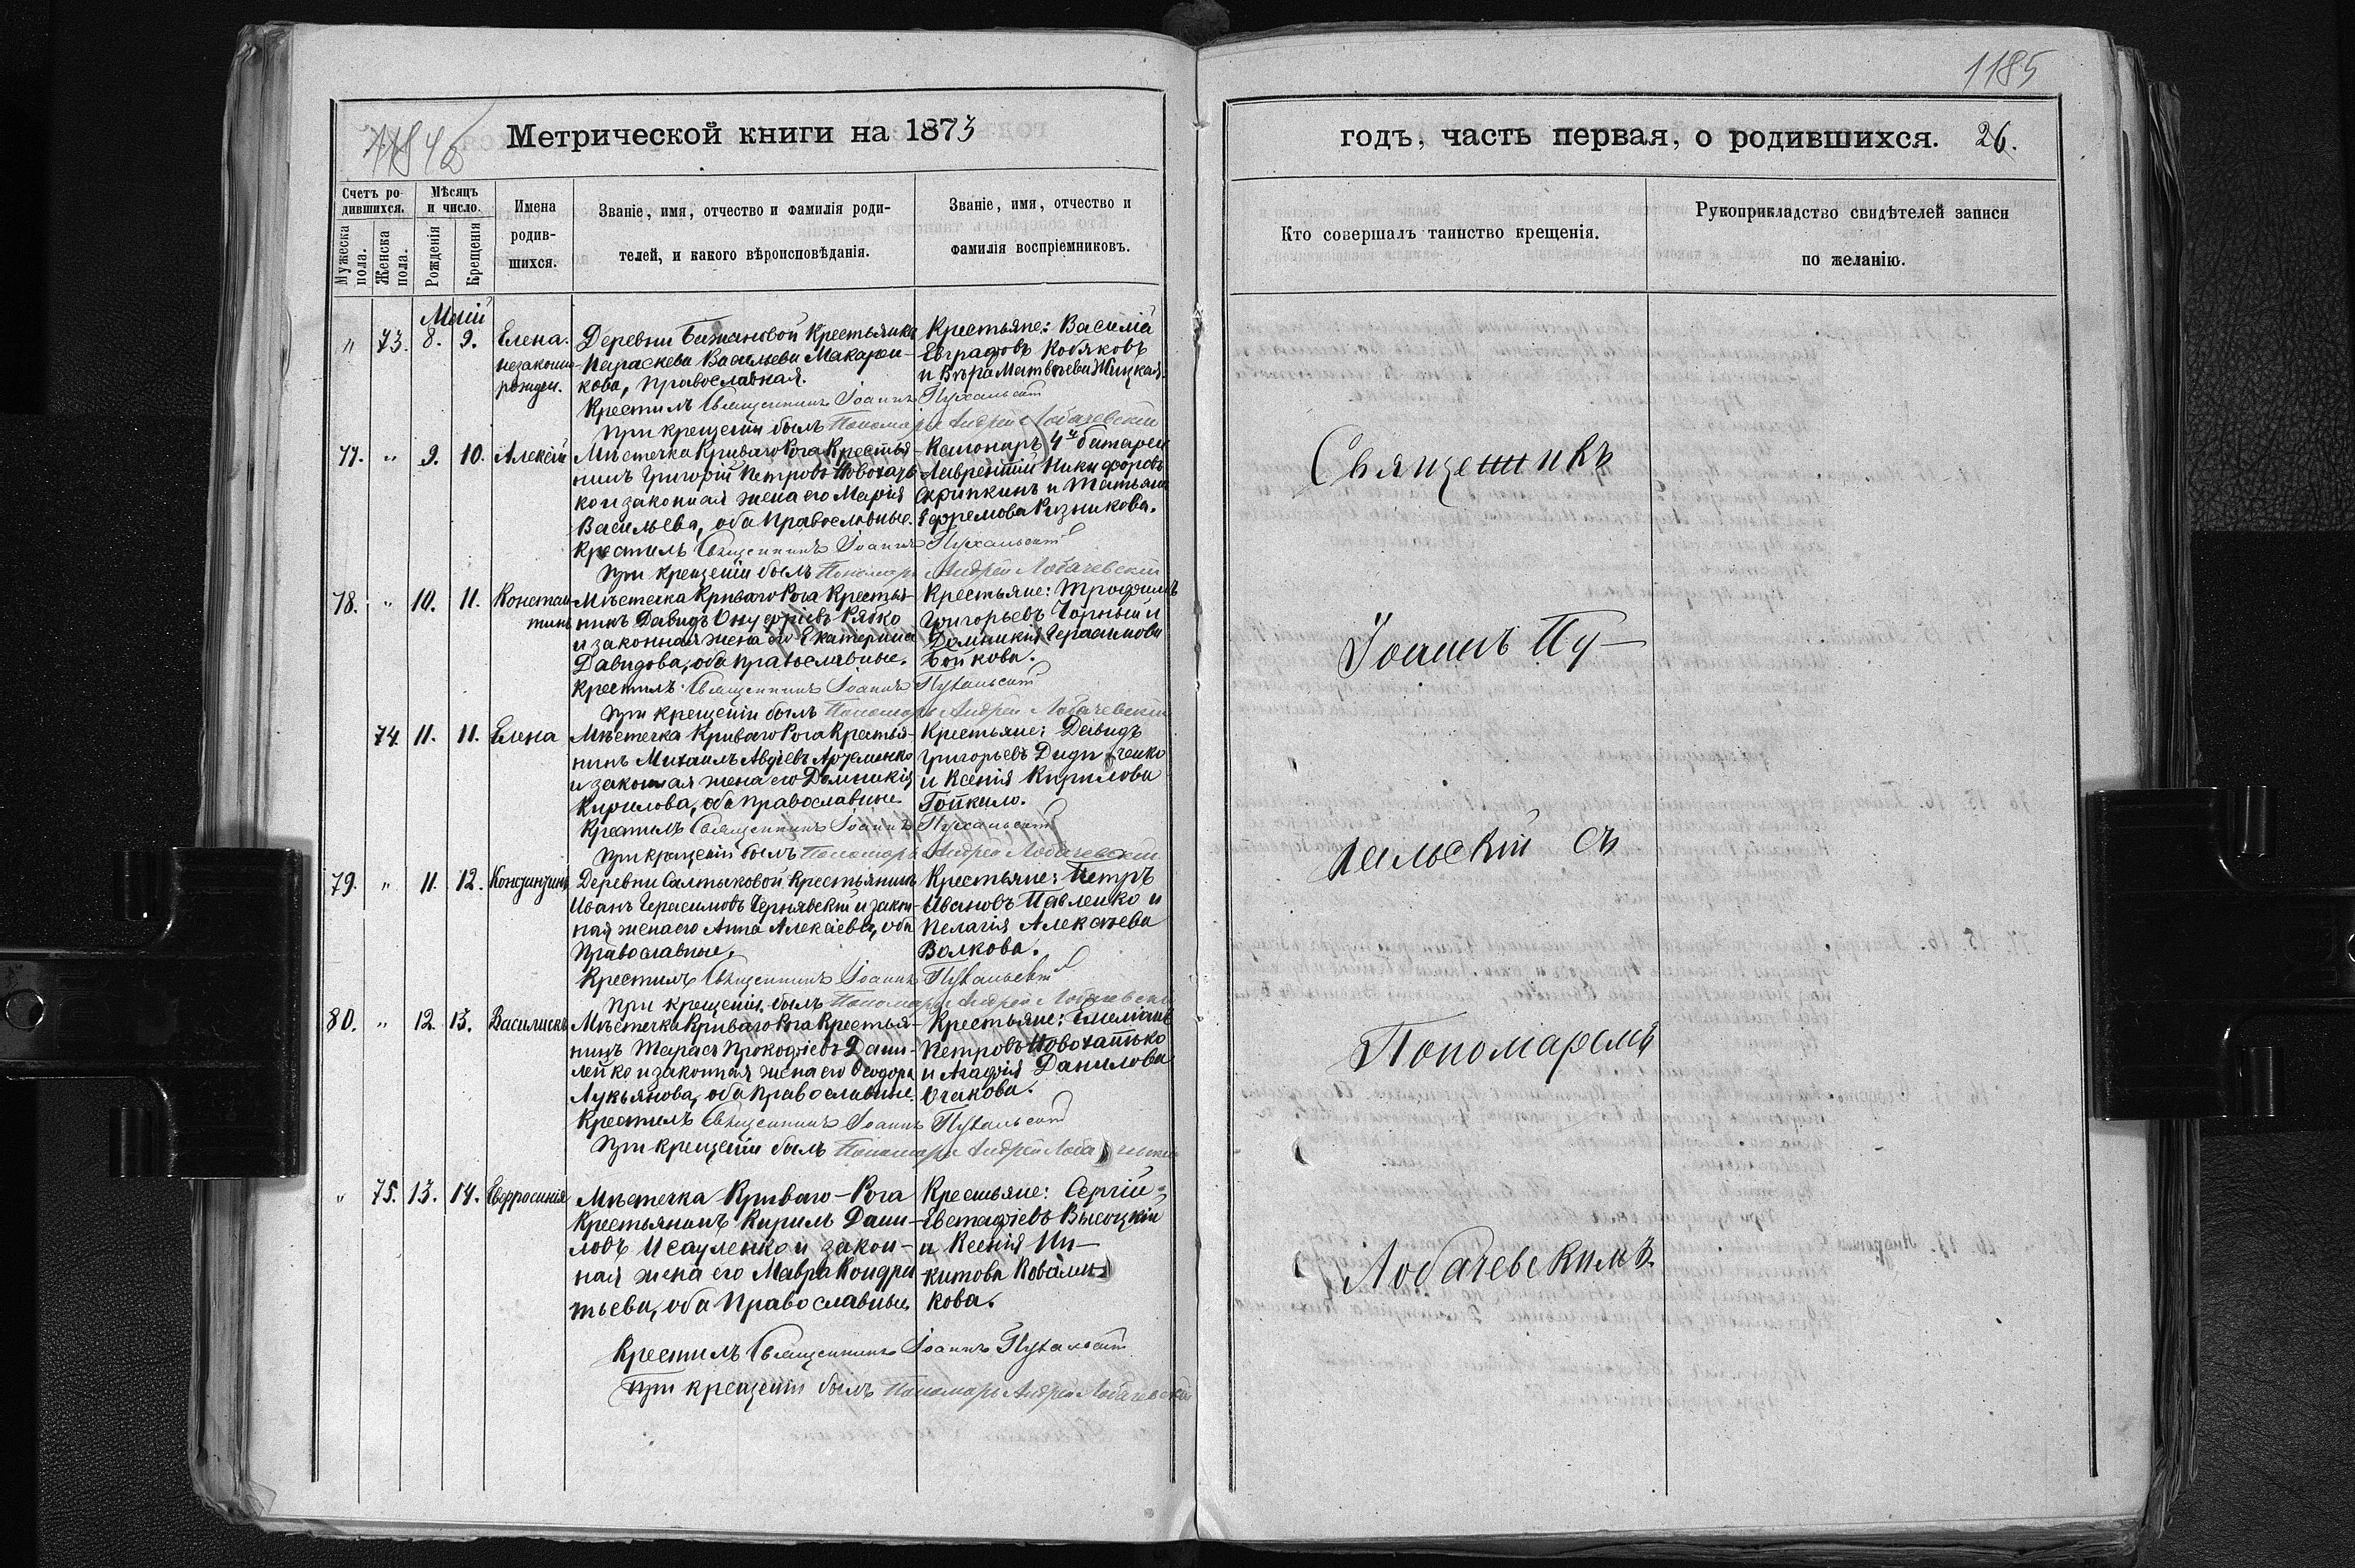 1185
Метрической книги на 1873
годъ, часть первая, о родившихся. 26.
Счетъ ро-
дившихся.
Мужеска пола.
Женска пола.
Мѣсяцъ
и число.
Рожденія
Крещенія
Имена
родив-
шихся.
Званіе, имя, отчество и фамилія роди-
телей, и какого вѣроисповѣданія.
Званіе, имя, отчество и
фамилія воспріемниковъ.
Кто совершалъ таинство крещенія.
Рукоприкладство свидѣтелей записи
по желанію.
Маій
" 73. 8. 9. Елена.
незаконно-
рожден.
Деревни Крестьянка
Параскева Васильева Макарен-
кова, православная.
Крестьяне: Василій
Евграфовъ Кобяковъ
и Вѣра Матвѣева
Крестилъ Священникъ Іоаннъ Пухальскій
При крещеніи былъ Пономарь Андрей Лобачевскій
77. " 9. 10. Алексій
Мѣстечка Криваго Рога Крестья-
нинъ Григорій Петровъ Новохать-
ко и законная жена его Марія
Васильева, оба Православные.
Канониръ 4й батареи
Лаврентій Никифоровъ
Скрипкинъ и Татьяна
Ефремова Рязникова.
Крестилъ Священникъ Іоаннъ Пухальскій
При крещеніи былъ Пономарь Андрей Лобачевскій
78. " 10. 11. Констан-
тинъ
Мѣстечка Криваго Рога Крестья-
нинъ Давидъ Онуфріевъ Рябко
и законная жена его Екатерина
Давидова, оба православные.
Крестьяне: Трофимъ
Григорьевъ Чорный и
Домникія Герасимова
Бойкова.
Крестилъ Священникъ Іоаннъ Пухальскій
При крещеніи былъ Пономарь Андрей Лобачевскій
74. 11. 11. Елена
Мѣстечка Криваго Рога Крестья-
нинъ Михаилъ Авдіевъ Артеменко
и законная жена его Домникія
Кирилова, оба православные
Крестьяне: Давидъ
Григорьевъ Диди ченко
и Ксенія Кирилова
Крестилъ Священникъ Іоаннъ Пухальскій
При крещеніи былъ Пономарь Андрей Лобачевскій
79. " 11. 12. Константинъ
Деревни Салтыковой Крестьянинъ
Иванъ Герасимовъ Чернявскій и закон-
ная жена его Анна Алексіева, оба
Православные.
Крестьяне: Петръ
Ивановъ Павленко и
Пелагія Алексѣева
Волкова.
Крестилъ Священникъ Іоаннъ Пухальскій
При крещеніи былъ Пономарь Андрей Лобачевскій
80. " 12. 13. Василискъ
Мѣстечка Криваго Рога Крестья-
нинъ Тарасъ Прокофіевъ Дани-
лейко и законная жена его Ѳеодора
Лукьянова, оба Православные.
Крестьяне: Емеліанъ
Петровъ Новохатько
и Агафія Данилова
Очакова.
Крестилъ Священникъ Іоаннъ Пухальскій
При крещеніи былъ Пономарь Андрей Лобачевскій
" 75. 13. 14. Евфросинія
Мѣстечка Криваго-Рога
Крестьянинъ Кирилъ Дани-
ловъ Исауленко и закон-
ная жена его Мавра Кондра-
тьева, оба Православные.
Крестьяне: Сергій
Евстафіевъ Высоцкій
и Ксенія Ни-
китова Ковален-
кова.
Крестилъ Священникъ Іоаннъ Пухальскій
При крещеніи былъ Пономарь Андрей Лобачевскій
Священникъ
Іоаннъ Пу-
хальскій съ
Пономаремъ
Лобачевскимъ